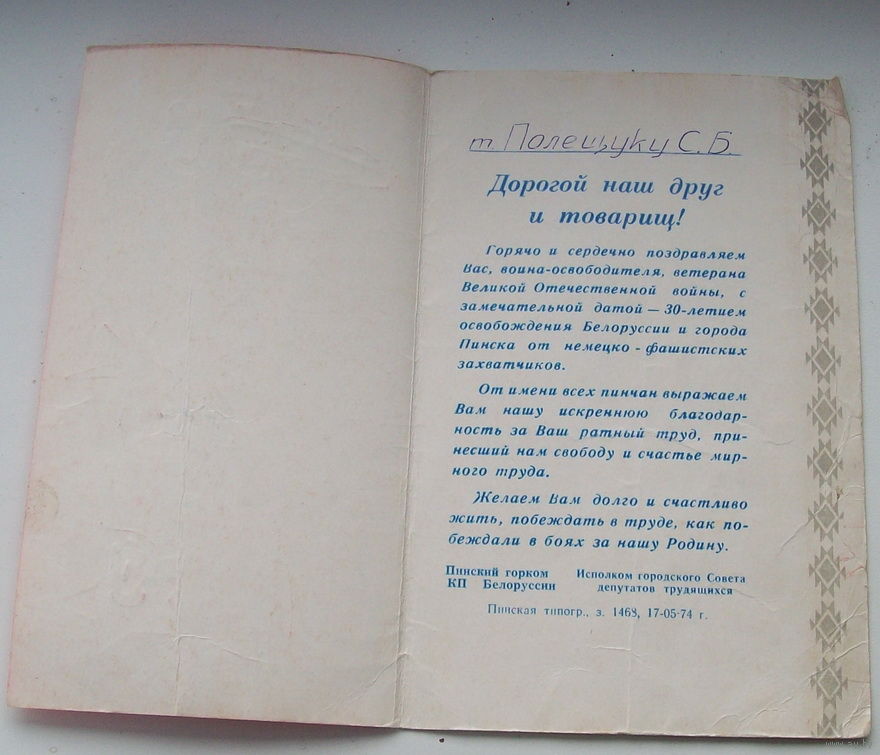 т. Полещуку С.Б.
Дорогой наш друг
и товарищ!
Горячо и сердечно поздравляем
Вас, воина-освободителя, ветерана
Великой Отечественной войны, с
замечательной датой — 30-летием
освобождения Белоруссии и города
Пинска от немецко-фашистских
захватчиков.
От имени всех пинчан выражаем
Вам нашу искреннюю благодар-
ность за Ваш ратный труд, при-
несший нам свободу и счастье мир-
ного труда.
Желаем Вам долго и счастливо
жить, побеждать в труде, как по-
беждали в боях за нашу Родину.
Пинский горком Исполком городского Совета
КП Белоруссии депутатов трудящихся
Пинская типогр., з. 1468, 17-05-74 г.